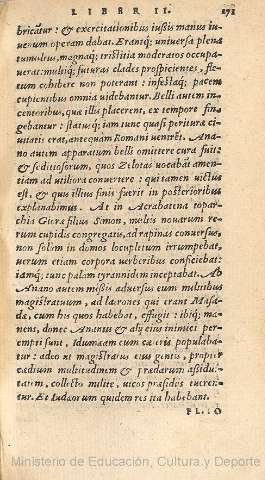 LIBER II. 171
bricatur: & exercitationibus iussis manus iu
uenum operam dabat. Erantq; uniuersa plena
tumultus, magnaq; tristitia moderatos occupa
uerat: multiq; futuras clades prospicientes, fle
tum cohibere non poterant: infestaq; pacem
cupientibus omnia uidebantur. Belli autem in
centoribus, quæ illi placerent, ex tempore fin
gebantur: statusq; iam tunc quasi perituræ ci
uitatis erat, antequam Romani uenirēt. Ana
no autem apparatum belli omittere cura fuit
& seditiosorum, quos Zelotas uocabāt amen
tiam ad utiliora conuertere: qui tamen uictus
est, & quis illius finis fuerit in posterioribus
explanabimus. At in Acrabatena topar
chia Gioræ filius Simon, multis nouarum re
rum cupidis congregatis, ad rapinas conuersus,
non solùm in domos locupletum irrumpebat,
uerum etiam corpora uerberibus conficiebat:
iamq; tunc palàm tyrannidem inceptabat. Ab
Anano autem missis aduersus eum militibus
magistratuum, ad latrones qui erant Masa-
dæ, cum his quos habebat, effugit: ibiq; ma
nens, donec Ananus & alij eius inimici per-
empti sunt, Idumæam cum cæteris populaba-
tur: adeo ut magistratus eius gentis, propter
cædium multitudinem & prædarum assidui-
tatem, collecto milite, uicos præsidijs tueren-
tur. Et Iudæorum quidem res ita habebant.
FL. IO
Ministerio de Educación, Cultura y Deporte